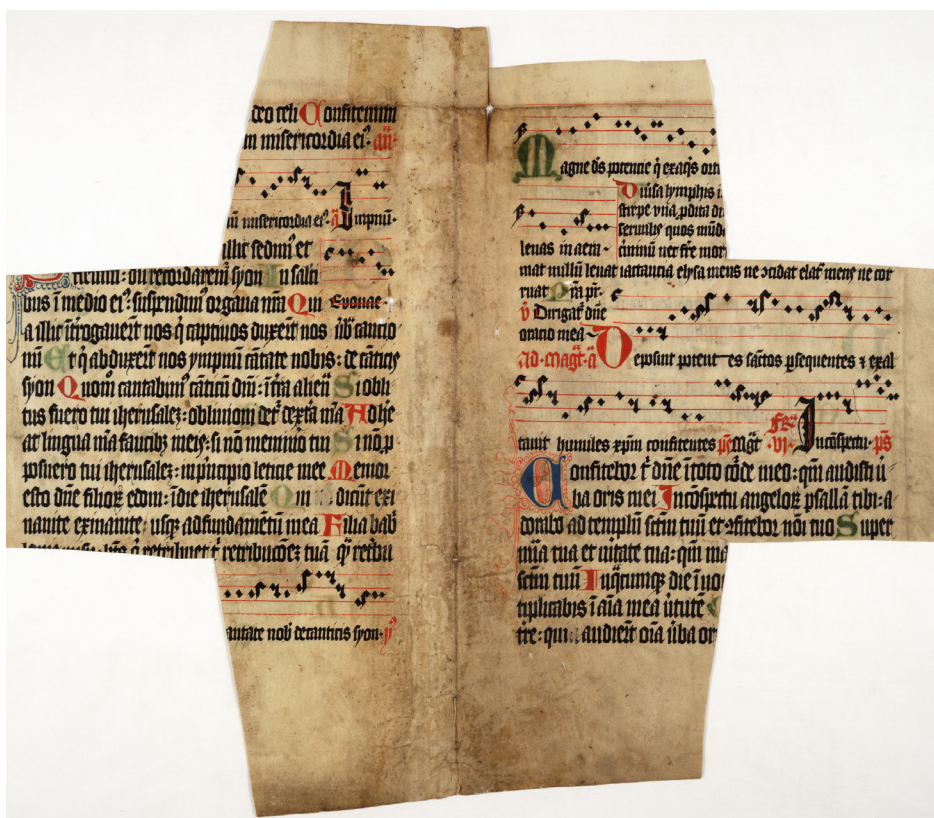 deo celi Confitemini
m misericordia ei⁹. añ.
misericordia ei⁹. a Impnū.
illic sedim⁹ et
flevim⁹: dū recordarem̄ syon In sali
bus ī medio ei⁹: suspendim⁹ organa nr̄a Qm̄ Evovae.
a illic īt̄rogaver̄t nos q̄ captivos duxer̄t nos v̄b cancio
nū Et q̄ abduxer̄t nos ympnū cātate nobis: de cātic̄
syon Quom̄ cantabim⁹ cāticū dm̄: ī t̄ra alien̄ Si obli
tus fuero tui iherusalez: oblivioni det̄ dext̄a m̄a Adhe
at lingua m̄a faucib⁹ meis: si nō meminio tui Si nō p
posuero tui iherusalez: in p̄ncipio leticie mee Memor
esto dn̄e filioꝝ edom: ī die iherusalē Qui dicūt exi
nanite exinanite: usq̨ ad fundamētū ī mea Filia bab̄
q̄ retribuet t̄ retribucōez tuā q̄ retbu
antate nob̄ de canticis syon. p̄
Magne ds̄ potencie q̄ exaq̄s ort
Divisa lymphis
stirpe una pdita
servilis quos
levas in aera.
mat nullū levat iactancia elysa mens ne ꝯcidat elat̄ mens ne cor
ruat P̄m pr̄.
v̄ Dirigat̄ dn̄e
oracio mea
Ad magt̄. a Deposuit potent es sāctos psequentes ⁊ exal
tavit humiles xp̄m confitentes ps̄ Mag̅t fr̄a vi. In cōspectu. ps̄
Confitebor t̄ dn̄e ī toto cōde meo: qm̄ audisti v̄
ba oris mei In cōspectu angeloꝝ psallā tibi: a
dorabo ad templū sctm̄ tuū et ꝯfitebor nōi tuo Super
mīa tua et v̄itate tua: qm̄ ma
sctm̄ tuū In q̄cunq̨ die īvo
tiplicabis ī aīa mea v̄tutē
t̄re: qui audier̄t oīa v̄ba or